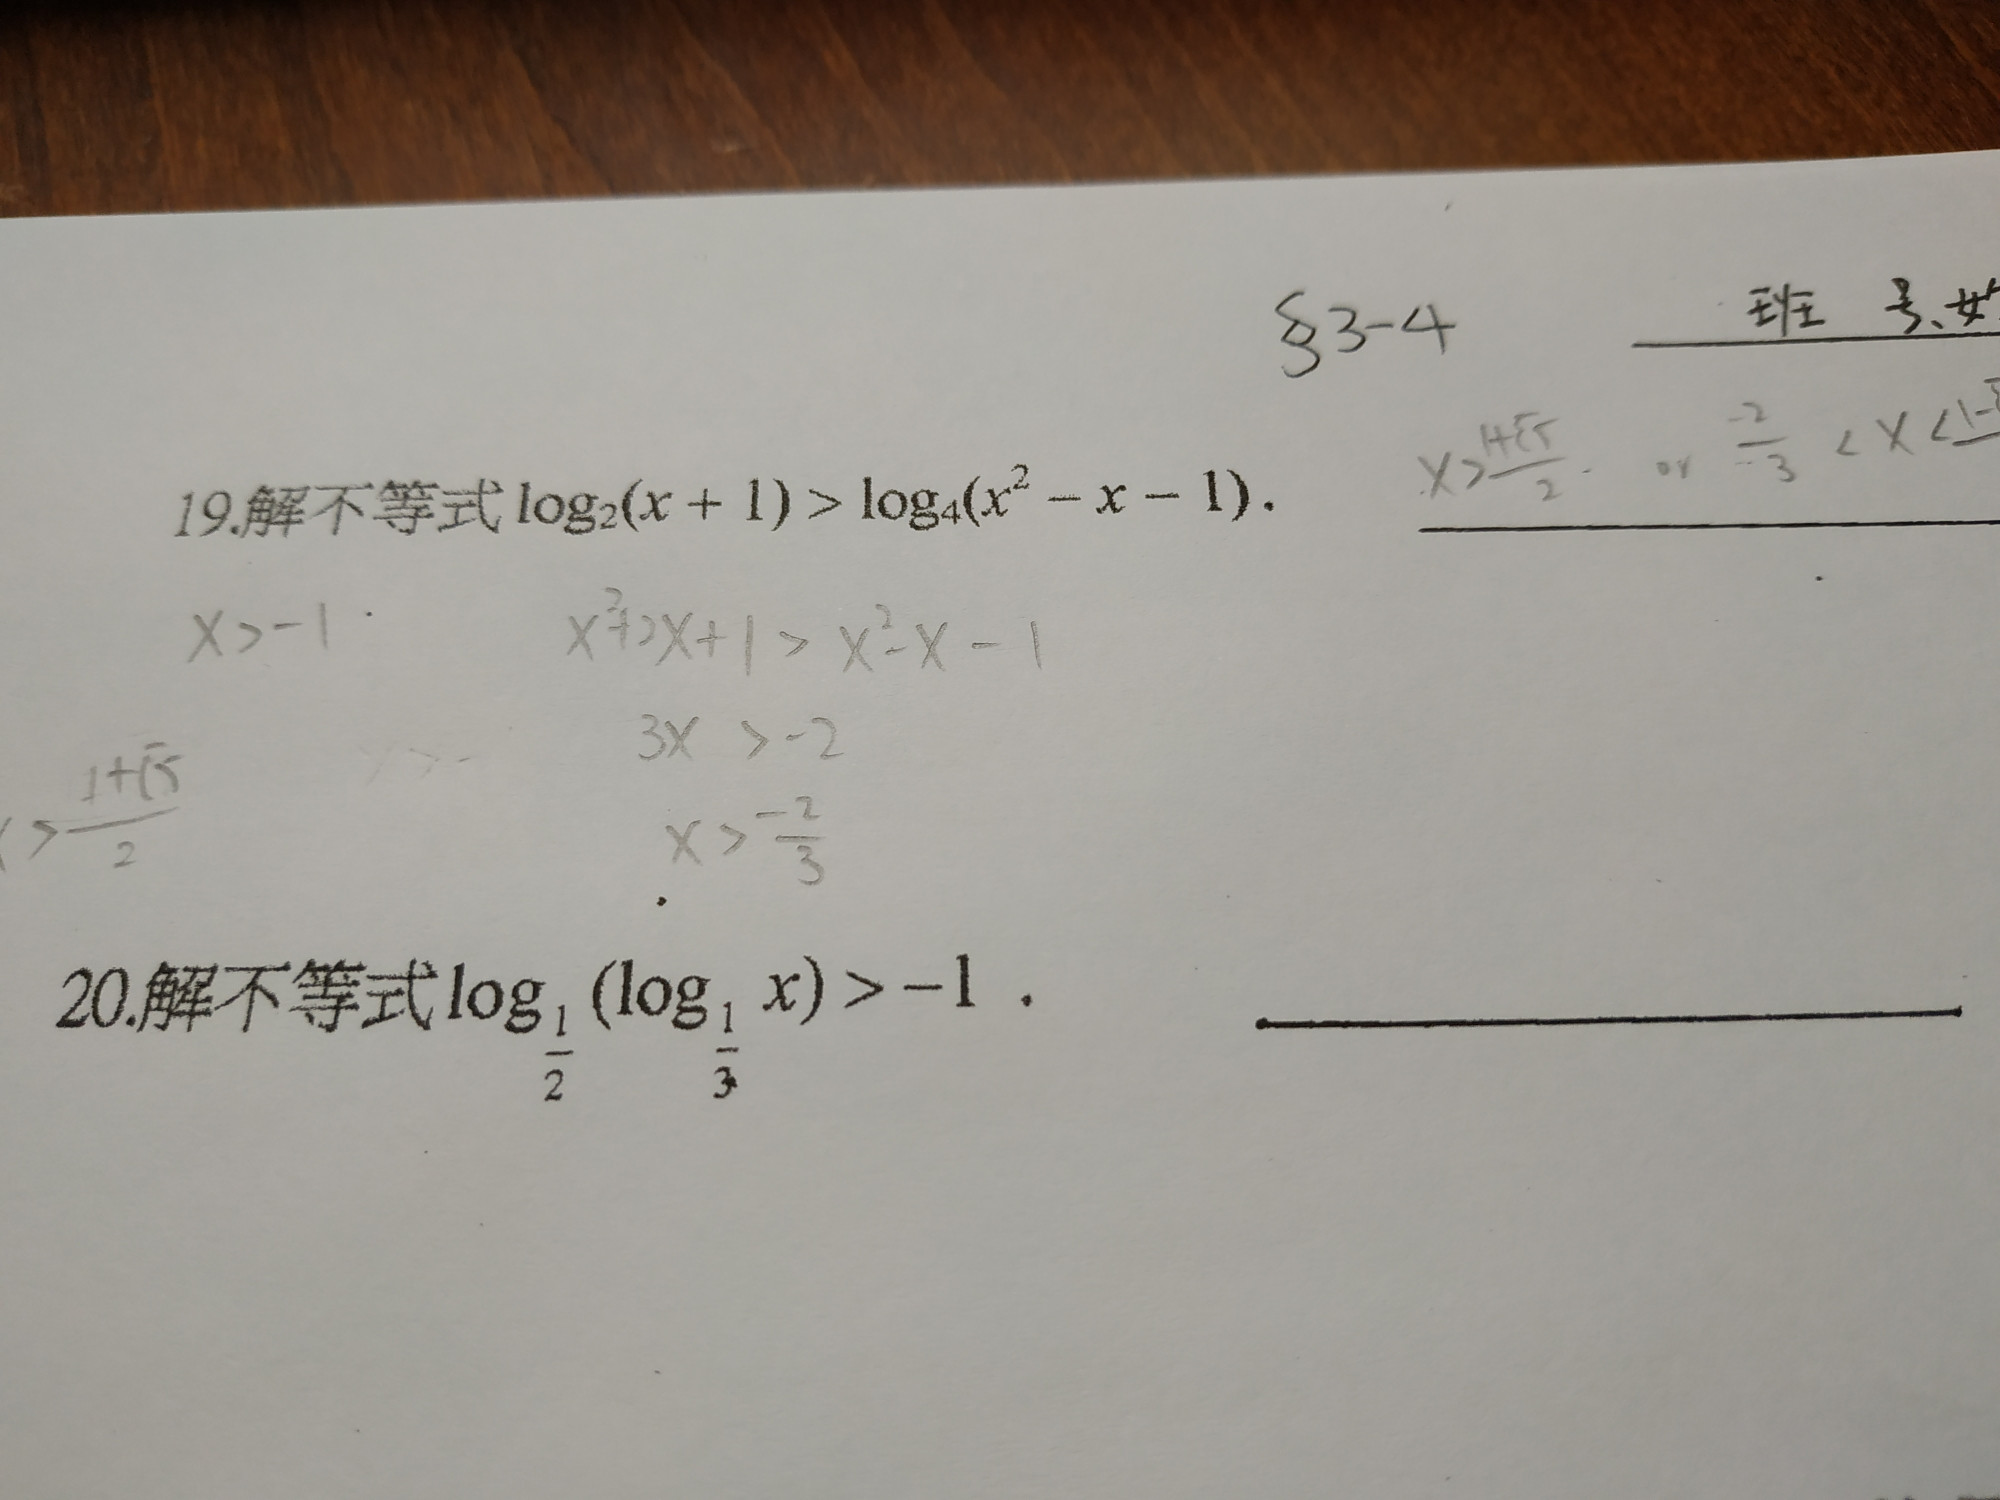 §3-4 班 号、
19.解不等式 log₂(x + 1) > log₄(x² − x − 1).
x > (1+√5)/2 or -2/3 < x <
x > -1 x²+2x+1 > x²-x-1
3x > -2
x > (1+√5)/2
x > -2/3
20.解不等式 log_{1/2} (log_{1/3} x) > −1 .